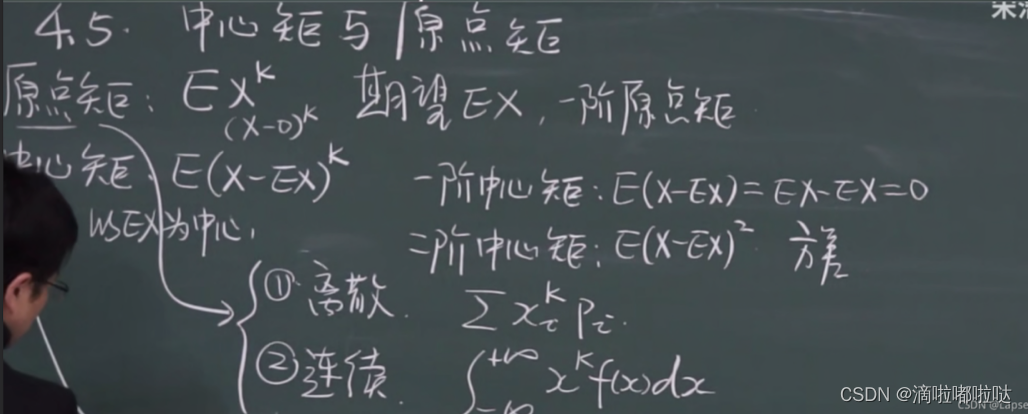 4.5. 中心矩与原点矩
原点矩: EX^k 期望EX, 一阶原点矩.
(X-0)^k
中心矩: E(X-EX)^k 一阶中心矩: E(X-EX)=EX-EX=0
以EX为中心, 二阶中心矩: E(X-EX)^2 方差
① 离散. ∑x_i^k P_i.
② 连续. ∫_{-∞}^{+∞} x^k f(x)dx
CSDN @滴啦嘟啦哒
CSDN @Lapse